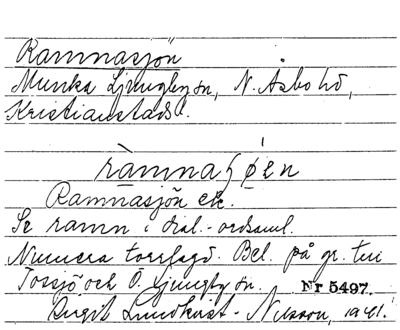 Ramnasjön
Munka Ljungby sn, N. Åsbo hd,
Kristianstads l.
ràmnaʃǿ́ɛn
Ramnasjön
Se ramn i dial.-ordsaml.
Numera torrlagd. Bel. på gr. till
Tossjö och Ö. Ljungby sn.
Nr 5497.
Birgit Lundkvist-Nilsson, 1941.